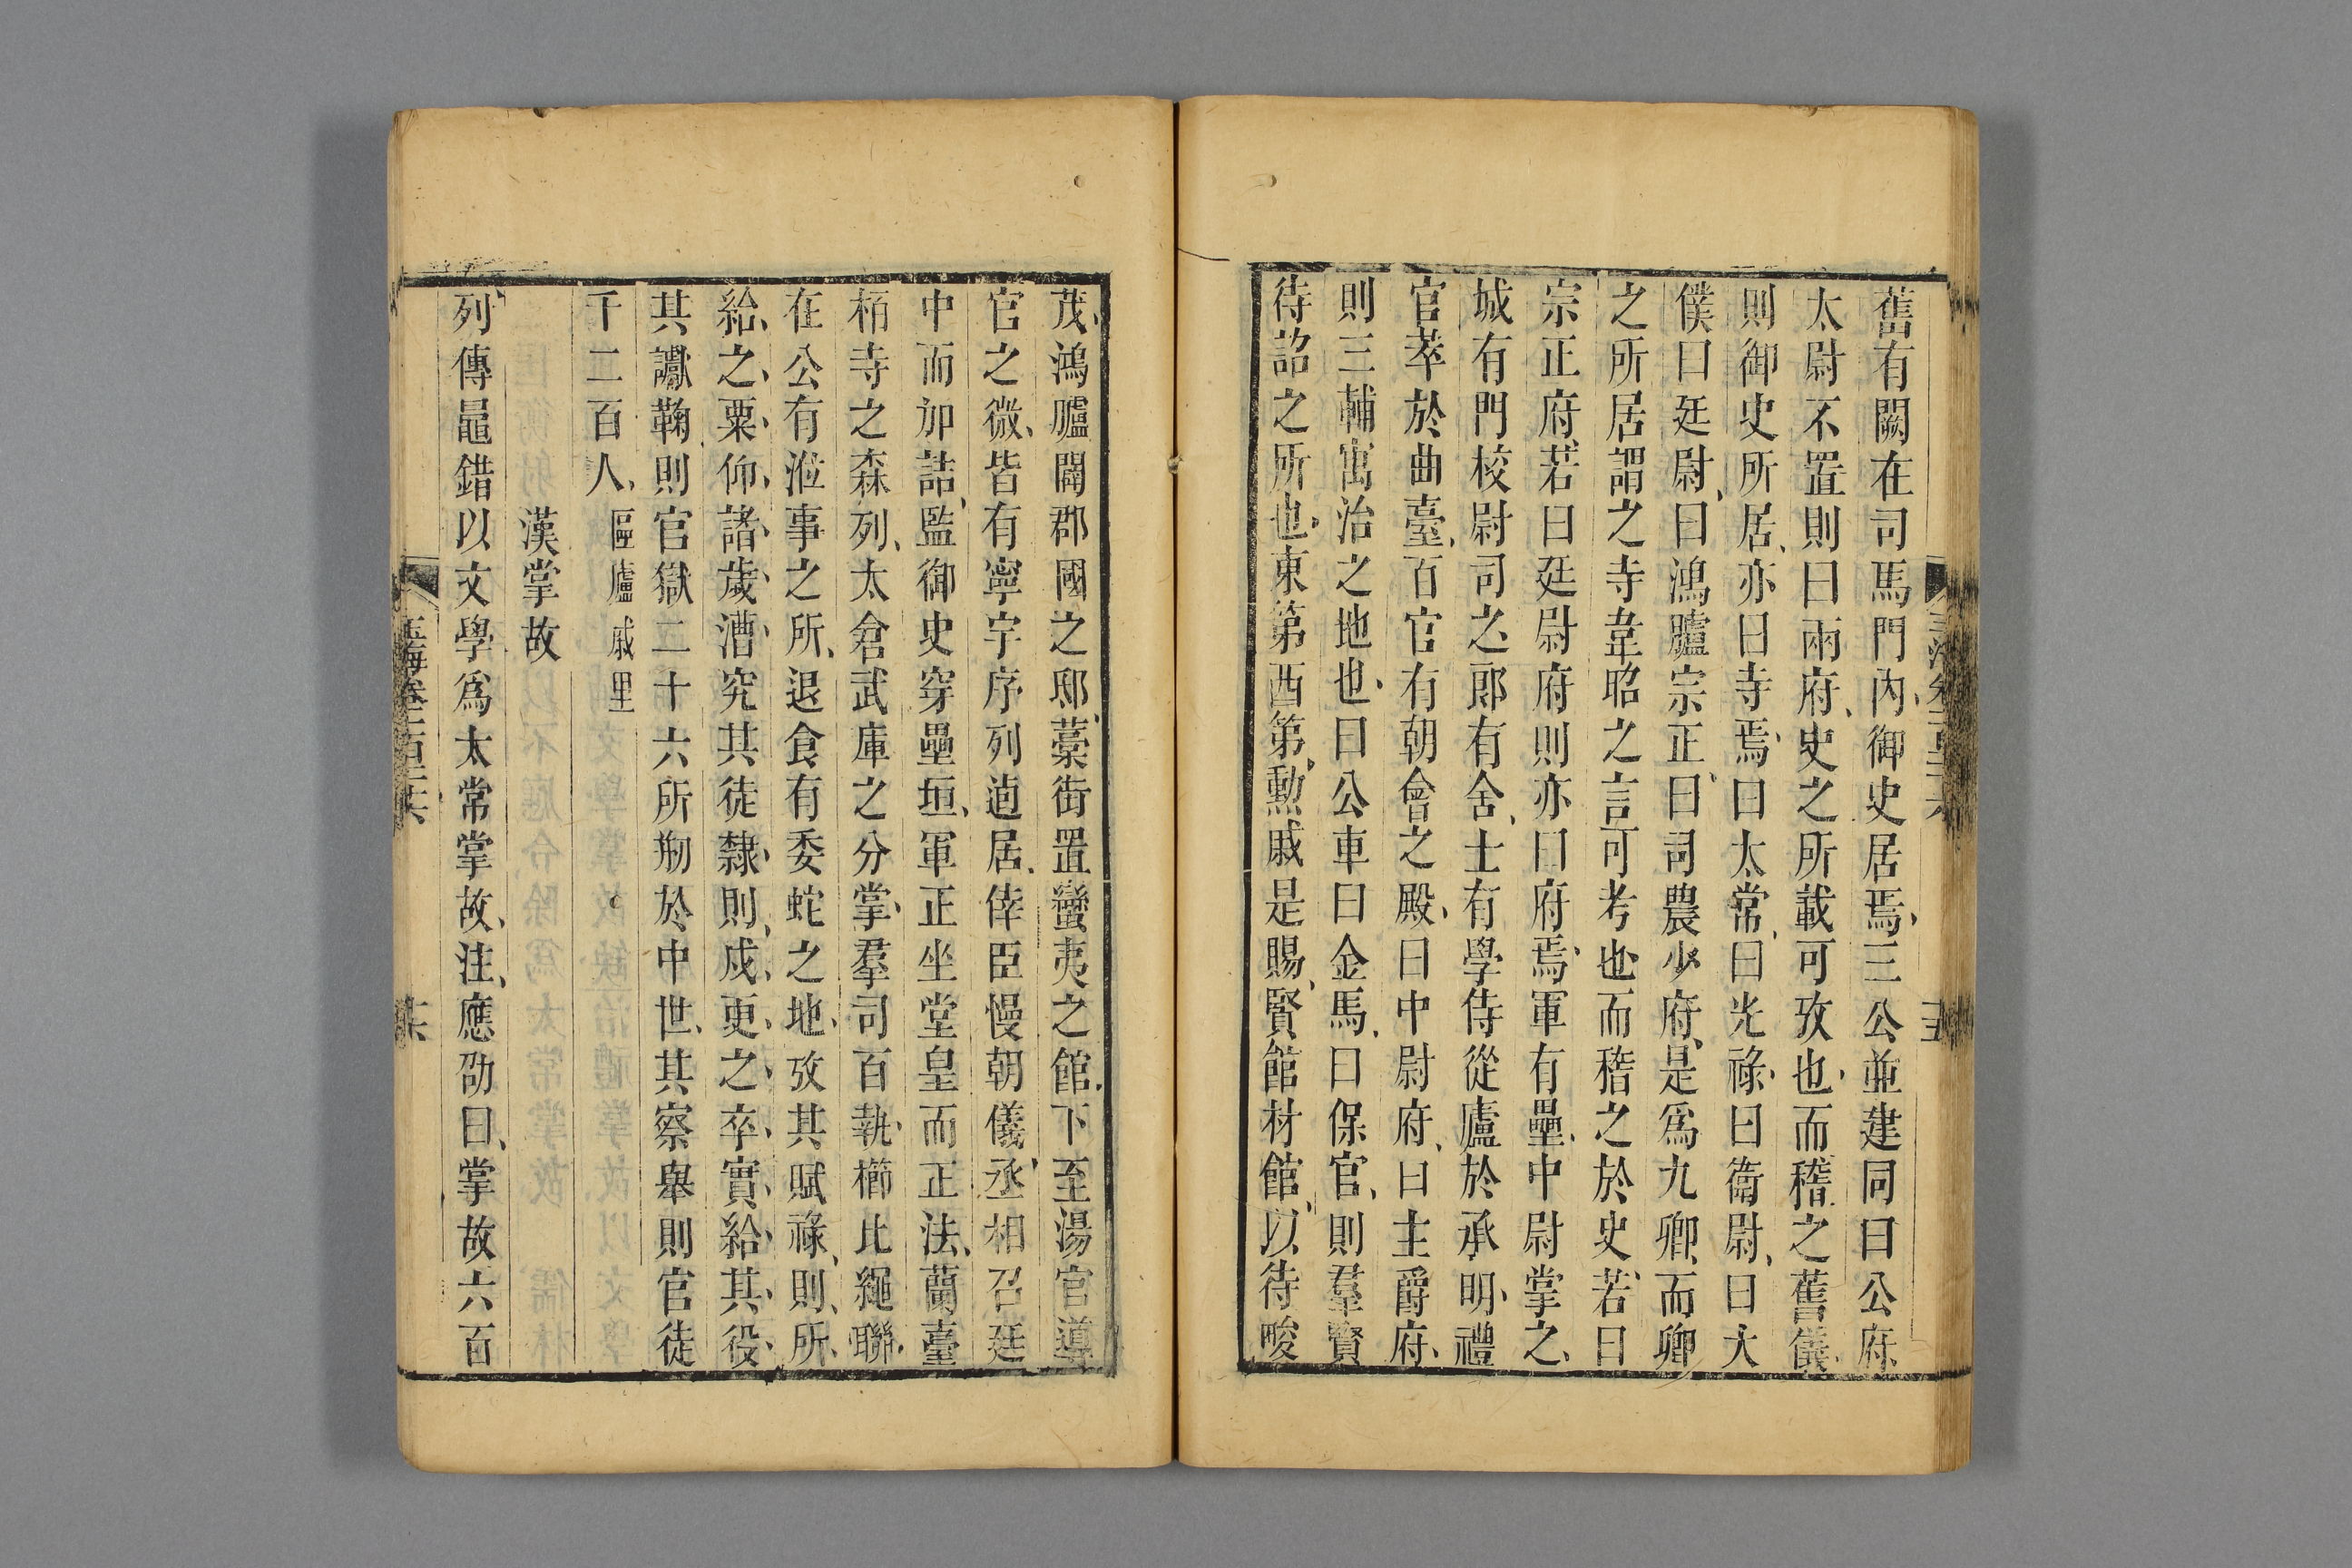 舊有闕在司馬門內御史居焉三公並建同曰公府
太尉不置則曰兩府史之所載可攷也而稽之舊儀
則御史所居亦曰寺焉曰太常曰光祿曰衞尉曰大
僕曰廷尉曰鴻臚宗正曰司農少府是爲九卿而卿
之所居謂之寺韋昭之言可考也而稽之於史若曰
宗正府若曰廷尉府則亦曰府焉軍有壘中尉掌之
城有門校尉司之郎有舍士有學侍從廬於承明禮
官萃於曲臺百官有朝會之殿曰中尉府曰主爵府
則三輔寓治之地也曰公車曰金馬曰保官則羣賢
待詔之所也東第西第勲戚是賜賢館材館以待畯
茂鴻臚闢郡國之邸藁街置蠻夷之館下至湯官導
官之微皆有寧宇序列逌居倖臣慢朝儀丞相召廷
中而加詰監御史穿壘垣軍正坐堂皇而正法蘭臺
栢寺之森列太倉武庫之分掌羣司百執櫛比繩聯
在公有涖事之所退食有委蛇之地攷其賦祿則所
給之粟仰諸歲漕究其徒隸則戍更之卒實給其役
其讞鞠則官獄二十六所剏於中世其察舉則官徒
千二百人 區廬戚里
漢掌故
列傳鼂錯以文學爲太常掌故注應劭曰掌故六百
玉海卷一百二十六